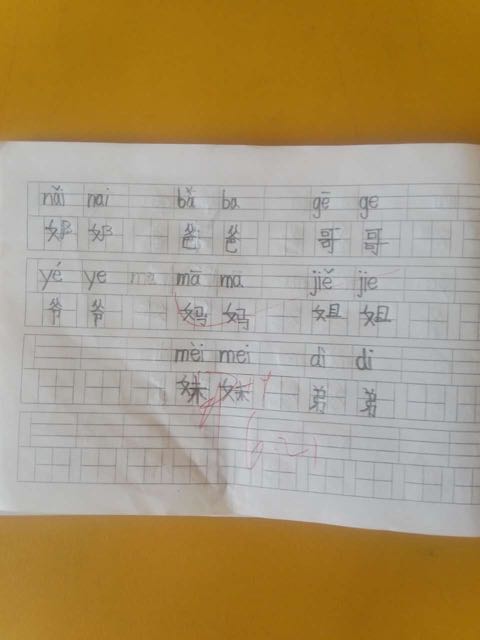 nǎi nai bǎ ba gē ge
奶 奶 爸 爸 哥 哥
yé ye ma mā ma jiě jie
爷 爷 妈 妈 姐 姐
mèi mei dì di
妹 妹 弟 弟